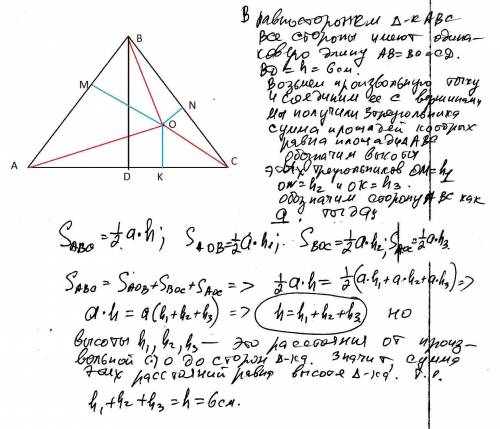 В равностороннем Δ-ке ABC
все стороны имеют одина-
ково длину AB=BC=CD.
BD = h = 6 см.
Возьмем произвольную точку
и соединим ее с вершинами
Мы получили 3 треугольника
сумма площадей которых
равна площади ΔABC
обозначим высоты
этих треугольников OM=h1
ON=h2 и OK=h3.
обозначим сторону ABC как
a. тогда:
B
M
N
O
A
D
K
C
S ABC = 1/2 a·h; S AOB = 1/2 a·h1; S BOC = 1/2 a·h2; S AOC = 1/2 a·h3
S ABC = S AOB + S BOC + S AOC => 1/2 a·h = 1/2 (a·h1+a·h2+a·h3) =>
a·h = a(h1+h2+h3) => h=h1+h2+h3 но
высоты h1, h2, h3 — это расстояния от произ-
вольной О до сторон Δ-ка. Значит, сумма
этих расстояний равна высоте Δ-ка. Т.е.
h1+h2+h3=h=6см.